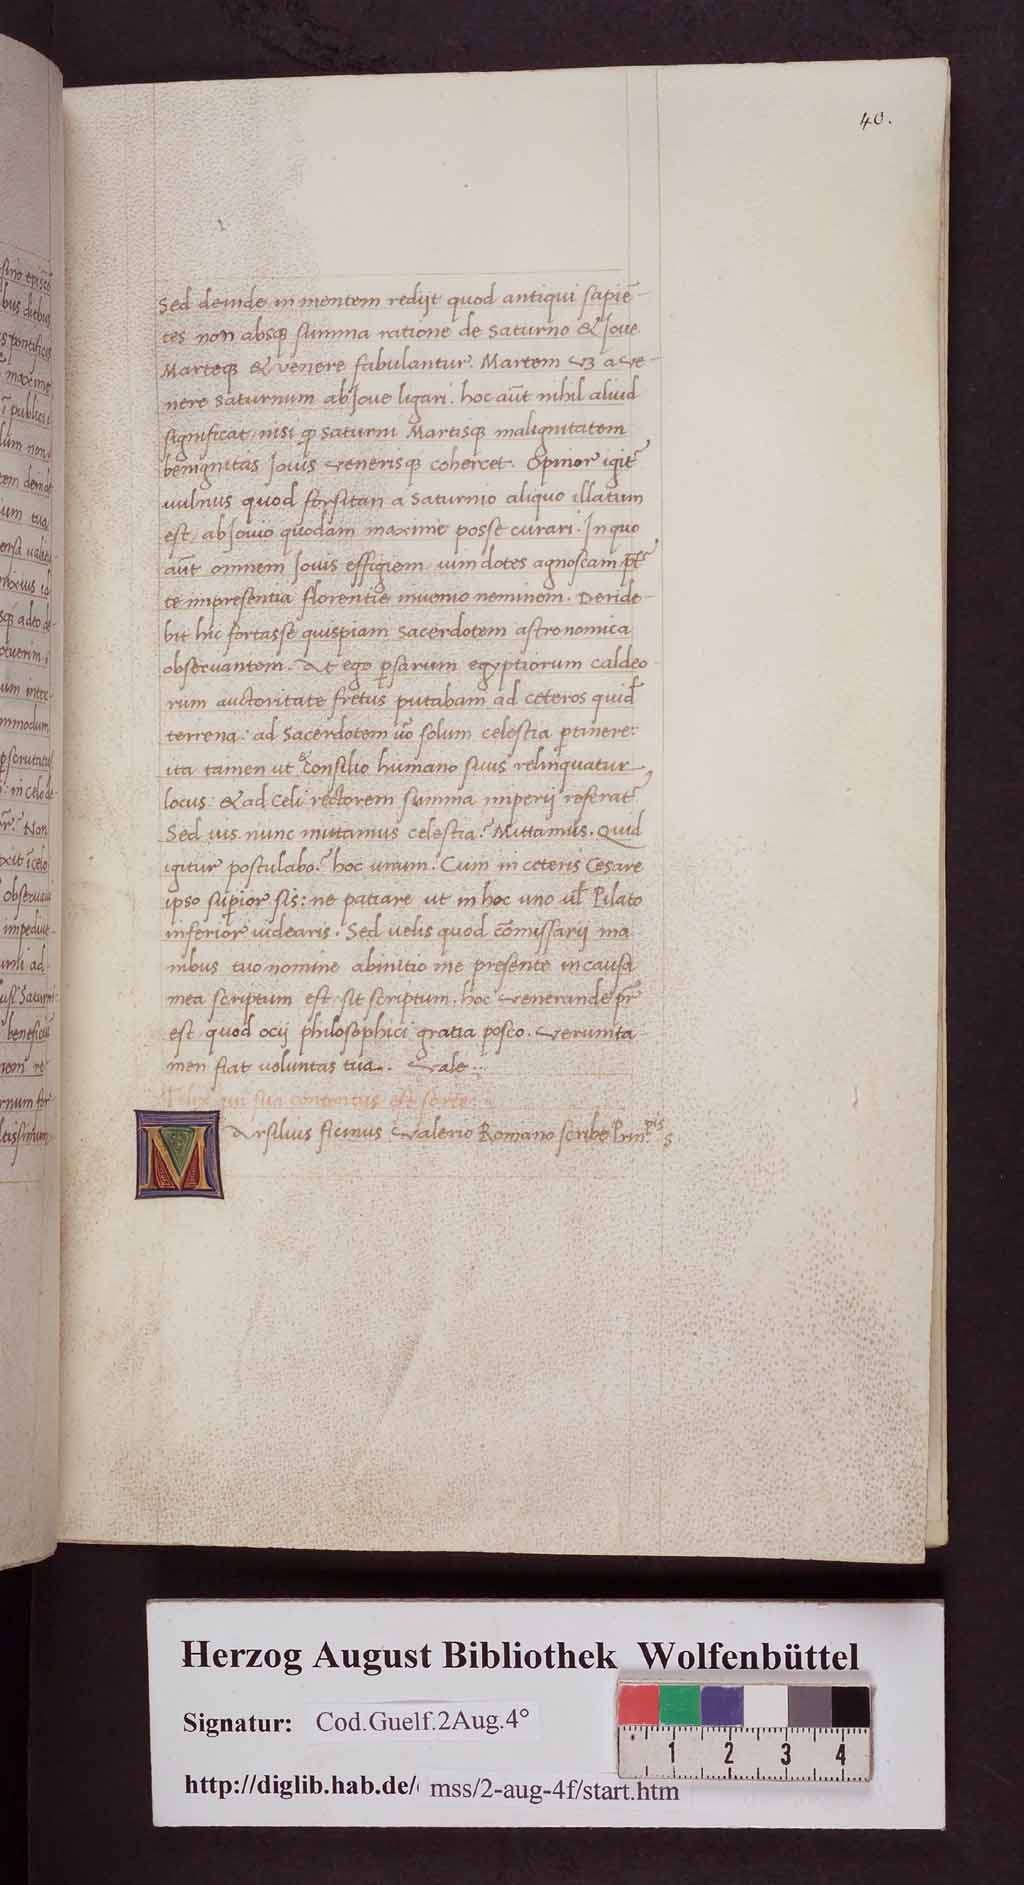 40.
Sed deinde in mentem redijt quod antiqui sapiē-
tes non absq summa ratione de Saturno & Joue
Marteq & venere fabulantur. Martem vꝫ a ve-
nere Saturnum ab Joue ligari. hoc aūt nihil aliud
significat, nisi ꝙ Saturni Martisq malignitatem
benignitas Jouis venerisq cohercet. Opinor igit̄
uulnus quod forsitan a Saturnio aliquo illatum
est, ab Jouio quodam maxime posse curari. In quo
aūt omnem Jouis effigiem, uim dotes agnoscam p̄t̄
te impresentia florentie inuenio neminem. Deride-
bit hic fortasse quispiam Sacerdotem astronomica
obseruantem. At ego ꝑsarum egyptiorum caldeo-
rum auctoritate fretus putabam ad ceteros quid̄
terrena: ad Sacerdotem uō solum celestia ꝑtinere:
ita tamen ut & consilio humano suus relinquatur
locus: & ad celi rectorem summa imperij referat̄.
Sed uis nunc mittamus celestia? Mittamus. Quid
igitur postulabo? hoc unum. Cum in ceteris Cesare
ipso suꝑior sis: ne patiare ut in hoc uno ul̄ Pilato
inferior uidearis. Sed uelis quod cōmissarij ma
nibus tuo nomine abinitio me presente in causa
mea scriptum est sit scriptum. hoc venerande pr̄
est quod ocij philosophici gratia posco. Verumta-
men fiat uoluntas tua. Vale.
qui sua contentus est sorte.
MArsilius ficinus Valerio Romano scribe Prin.pis S
sino
bus diebus
pontifices
maxime
publica
lum non
tem deinde
ium tua
ensa
adeo
um
mmodum
ꝑscrutatus
in celo
Non
obseruaui
impediut-
Saturni
rnum for-
Herzog August Bibliothek Wolfenbüttel
Signatur: Cod.Guelf.2Aug.4°
http://diglib.hab.de/ mss/2-aug-4f/start.htm
1 2 3 4